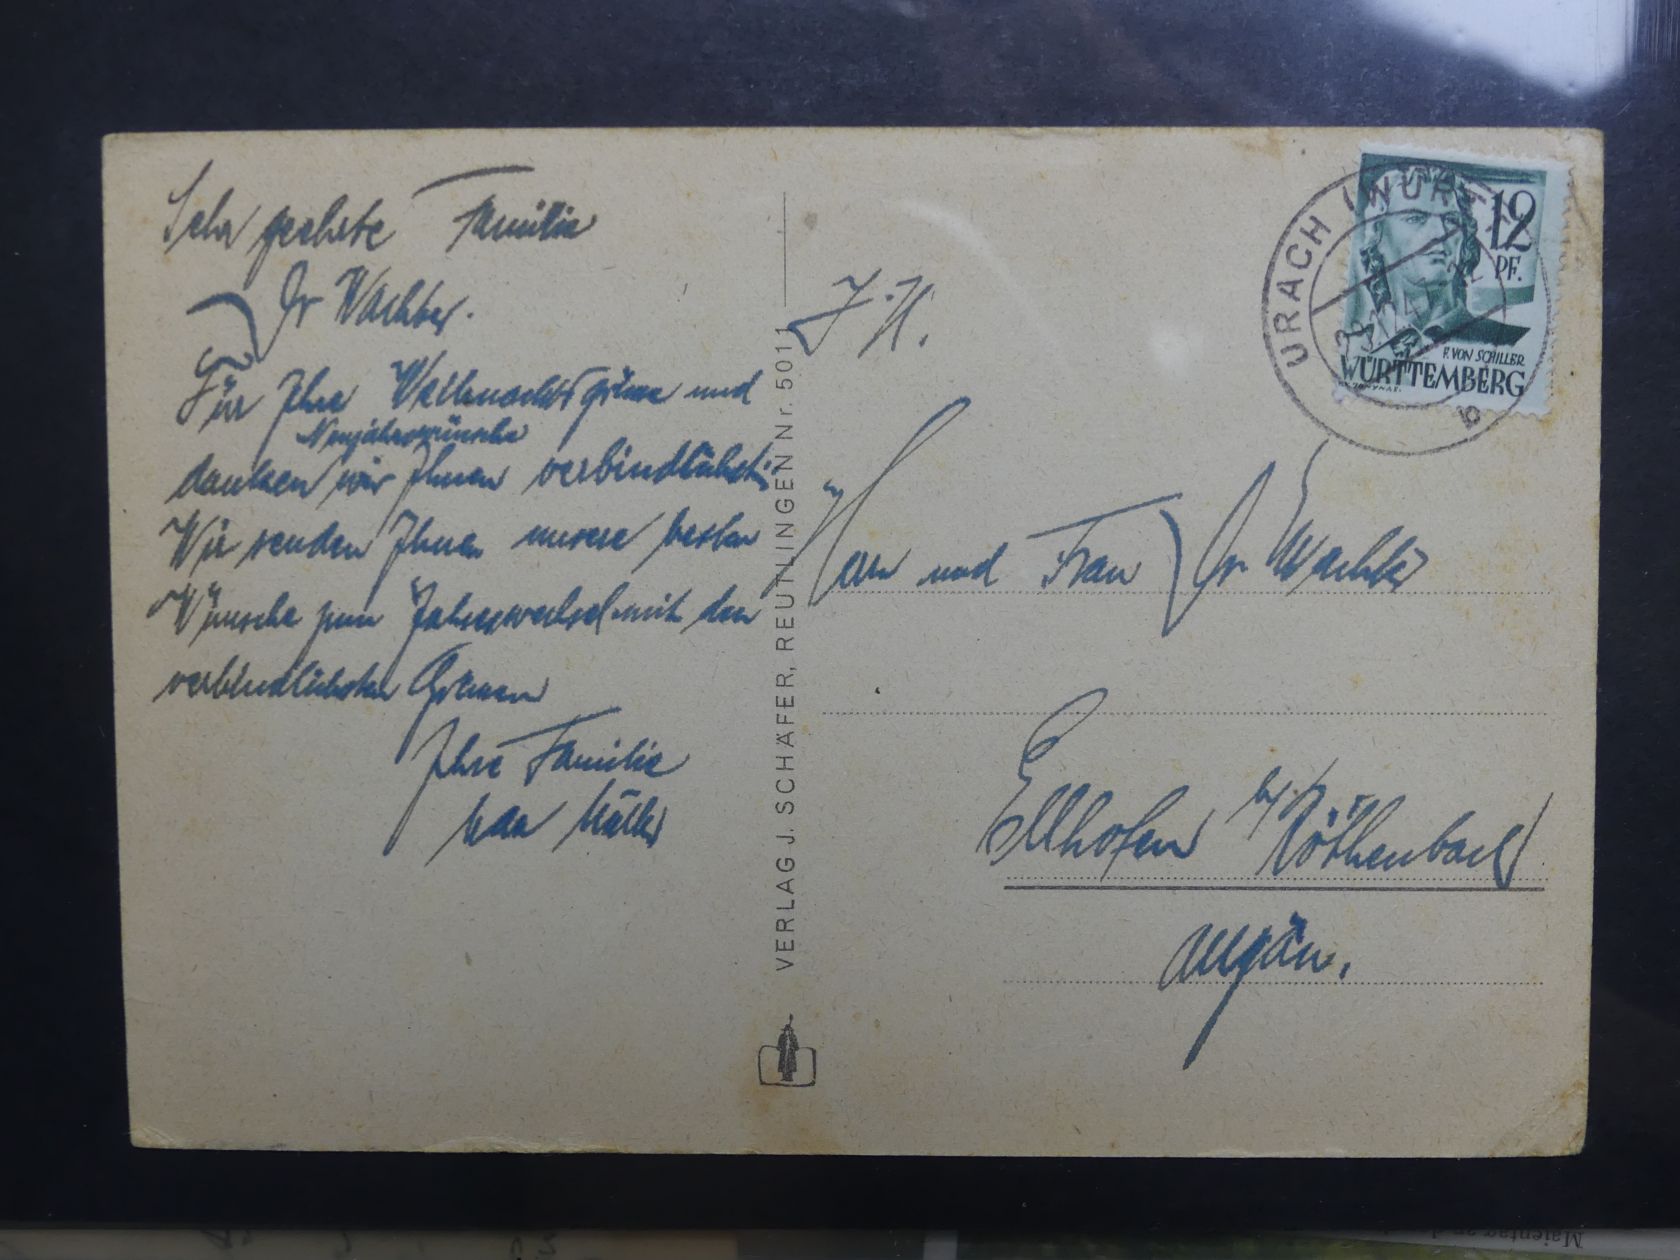 Sehr geehrte Familie
Dr Wachter.
Für Ihre Weihnachtsgrüsse und
Neujahrswünsche
danken wir Ihnen verbindlichst.
Wir senden Ihnen unsere besten
Wünsche zum Jahreswechsel mit den
verbindlichsten Grüssen
Ihre Familie
Müller
VERLAG J. SCHÄFER, REUTLINGEN Nr. 5011
URACH (WÜRTT
b
12
PF.
F. VON SCHILLER
WÜRTTEMBERG
Herrn und Frau Dr Wachter
Ellhofen by Röthenbach
Allgäu.